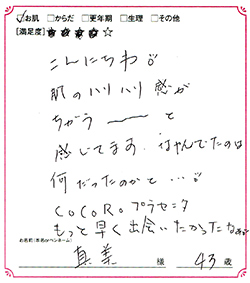 ☑お肌 □からだ □更年期 □生理 □その他
[満足度]★★★★☆
こんにちわ♪
肌のハリハリ感が
ちがう〜〜と
感じてます。悩んでたのは
何だったのかと…♪
COCORoプラセンタ
もっと早く出会いたかったなぁ
お名前(本名orペンネーム)
真美 様 43 歳